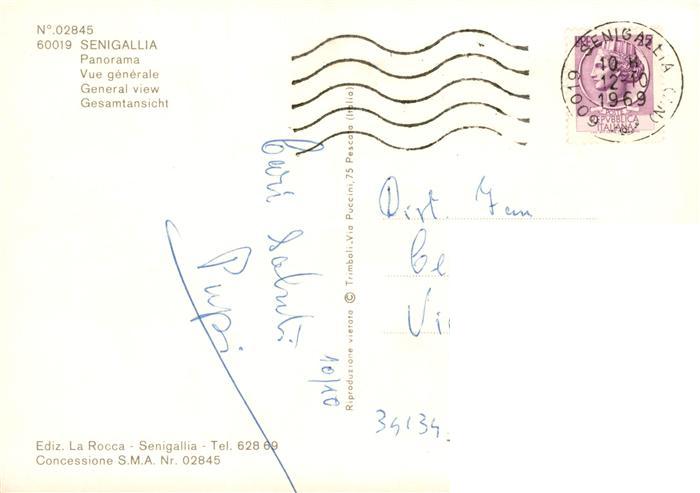 N°.02845
60019 SENIGALLIA
Panorama
Vue générale
General view
Gesamtansicht
Cari saluti
Pupi
10/10
Riproduzione vietata © Trimboli_Via Puccini,75 Pescara (Italia)
SENIGALLIA (AN)
10 H
12-10
1969
60019
REPVBBLICA
ITALIANA
Dist. Fam
Ce
Vi
34134
Ediz. La Rocca - Senigallia - Tel. 628 69
Concessione S.M.A. Nr. 02845